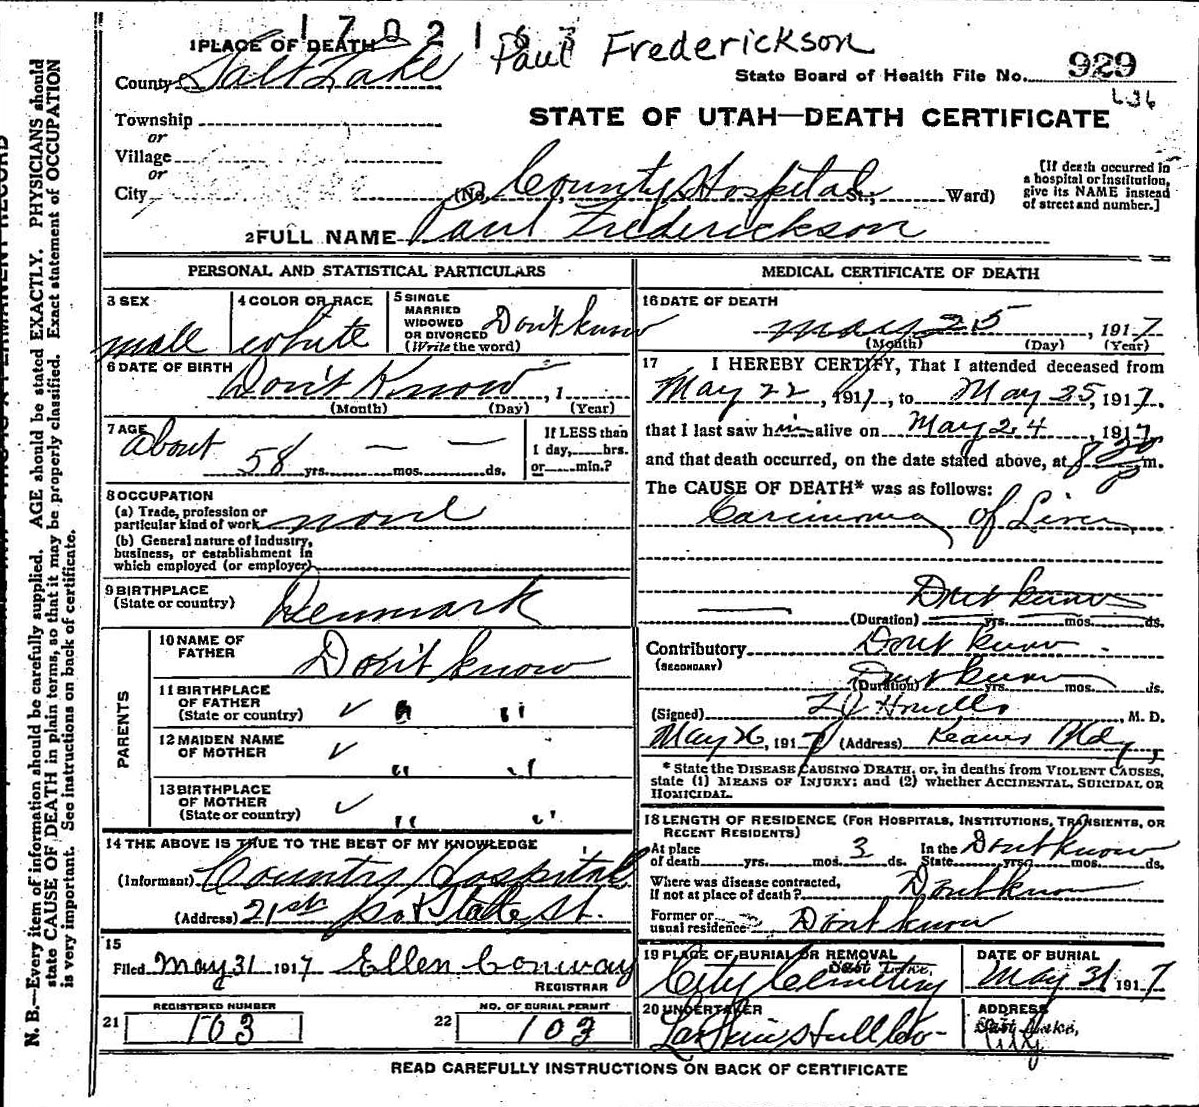 1702167
Paul Frederickson
1 PLACE OF DEATH
County Salt Lake
State Board of Health File No. 929
636
Township
or
STATE OF UTAH—DEATH CERTIFICATE
Village
or
City
(No. County Hospital St.; Ward)
[If death occurred in a hospital or institution, give its NAME instead of street and number.]
2 FULL NAME Paul Frederickson
PERSONAL AND STATISTICAL PARTICULARS
3 SEX
male
4 COLOR OR RACE
white
5 SINGLE MARRIED WIDOWED OR DIVORCED (Write the word) Don't know
6 DATE OF BIRTH
Don't Know, 1
(Month) (Day) (Year)
7 AGE
about 58 yrs. — mos. — ds.
If LESS than 1 day,....hrs. or.....min.?
8 OCCUPATION
(a) Trade, profession or particular kind of work none
(b) General nature of industry, business, or establishment in which employed (or employer)
9 BIRTHPLACE
(State or country) Denmark
PARENTS
10 NAME OF FATHER Don't know
11 BIRTHPLACE OF FATHER (State or country) ✓ " "
12 MAIDEN NAME OF MOTHER ✓ " "
13 BIRTHPLACE OF MOTHER (State or country) ✓ " "
14 THE ABOVE IS TRUE TO THE BEST OF MY KNOWLEDGE
(Informant) County Hospital
(Address) 21st So & State St.
15
Filed May 31 1917 Ellen Conway
REGISTRAR
REGISTERED NUMBER
21 103
NO. OF BURIAL PERMIT
22 103
MEDICAL CERTIFICATE OF DEATH
16 DATE OF DEATH
May 25, 1917
(Month) (Day) (Year)
17 I HEREBY CERTIFY, That I attended deceased from
May 22, 1917, to May 25, 1917.
that I last saw him alive on May 24, 1917
and that death occurred, on the date stated above, at 8 30 P m.
The CAUSE OF DEATH* was as follows:
Carcinoma of Liver
Dont know
(Duration) yrs. mos. ds.
Contributory Dont know
(SECONDARY)
Dont know
(Duration) yrs. mos. ds.
(Signed) M. D.
May 26, 1917 (Address) Kearns Bldg
* State the DISEASE CAUSING DEATH, or, in deaths from VIOLENT CAUSES, state (1) MEANS OF INJURY; and (2) whether ACCIDENTAL, SUICIDAL OR HOMICIDAL.
18 LENGTH OF RESIDENCE (FOR HOSPITALS, INSTITUTIONS, TRANSIENTS, OR RECENT RESIDENTS)
At place of death yrs. mos. 3 ds. In the State Dont know yrs. mos. ds.
Where was disease contracted, if not at place of death? Dont know
Former or usual residence Dont know
19 PLACE OF BURIAL OR REMOVAL
City Cemetery Salt Lake,
DATE OF BURIAL
May 31 1917
20 UNDERTAKER
Larkin Hull Co
ADDRESS
Salt Lake,
City
READ CAREFULLY INSTRUCTIONS ON BACK OF CERTIFICATE
N. B.—Every item of information should be carefully supplied. AGE should be stated EXACTLY. PHYSICIANS should
state CAUSE OF DEATH in plain terms, so that it may be properly classified. Exact statement of OCCUPATION
is very important. See instructions on back of certificate.